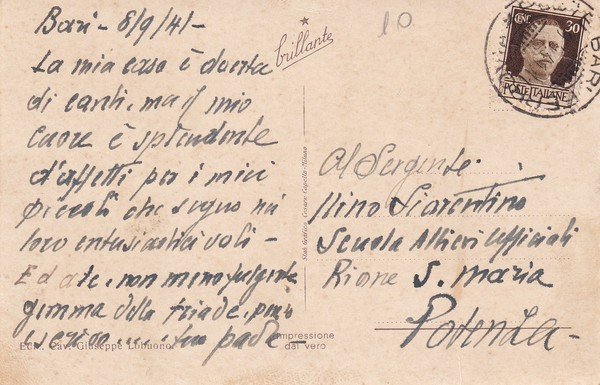 Bari - 8/9/41 -
La mia casa è
di canti, ma il mio
cuore è splendente
d'affetti per i miei
piccoli che seguo nei
loro entusiastici voli -
Ed a te, non meno fulgente
gemma della triade, penso
e tuo padre -
Ediz. Cav. Giuseppe Lobuono
brillante
Stab. Grafico Cesare Capello - Milano
impressione
dal vero
10
CENT. 30
POSTE ITALIANE
BARI
Al Sergente
Nino Fiorentino
Scuola Allievi Ufficiali
Rione S. Maria
Potenza -